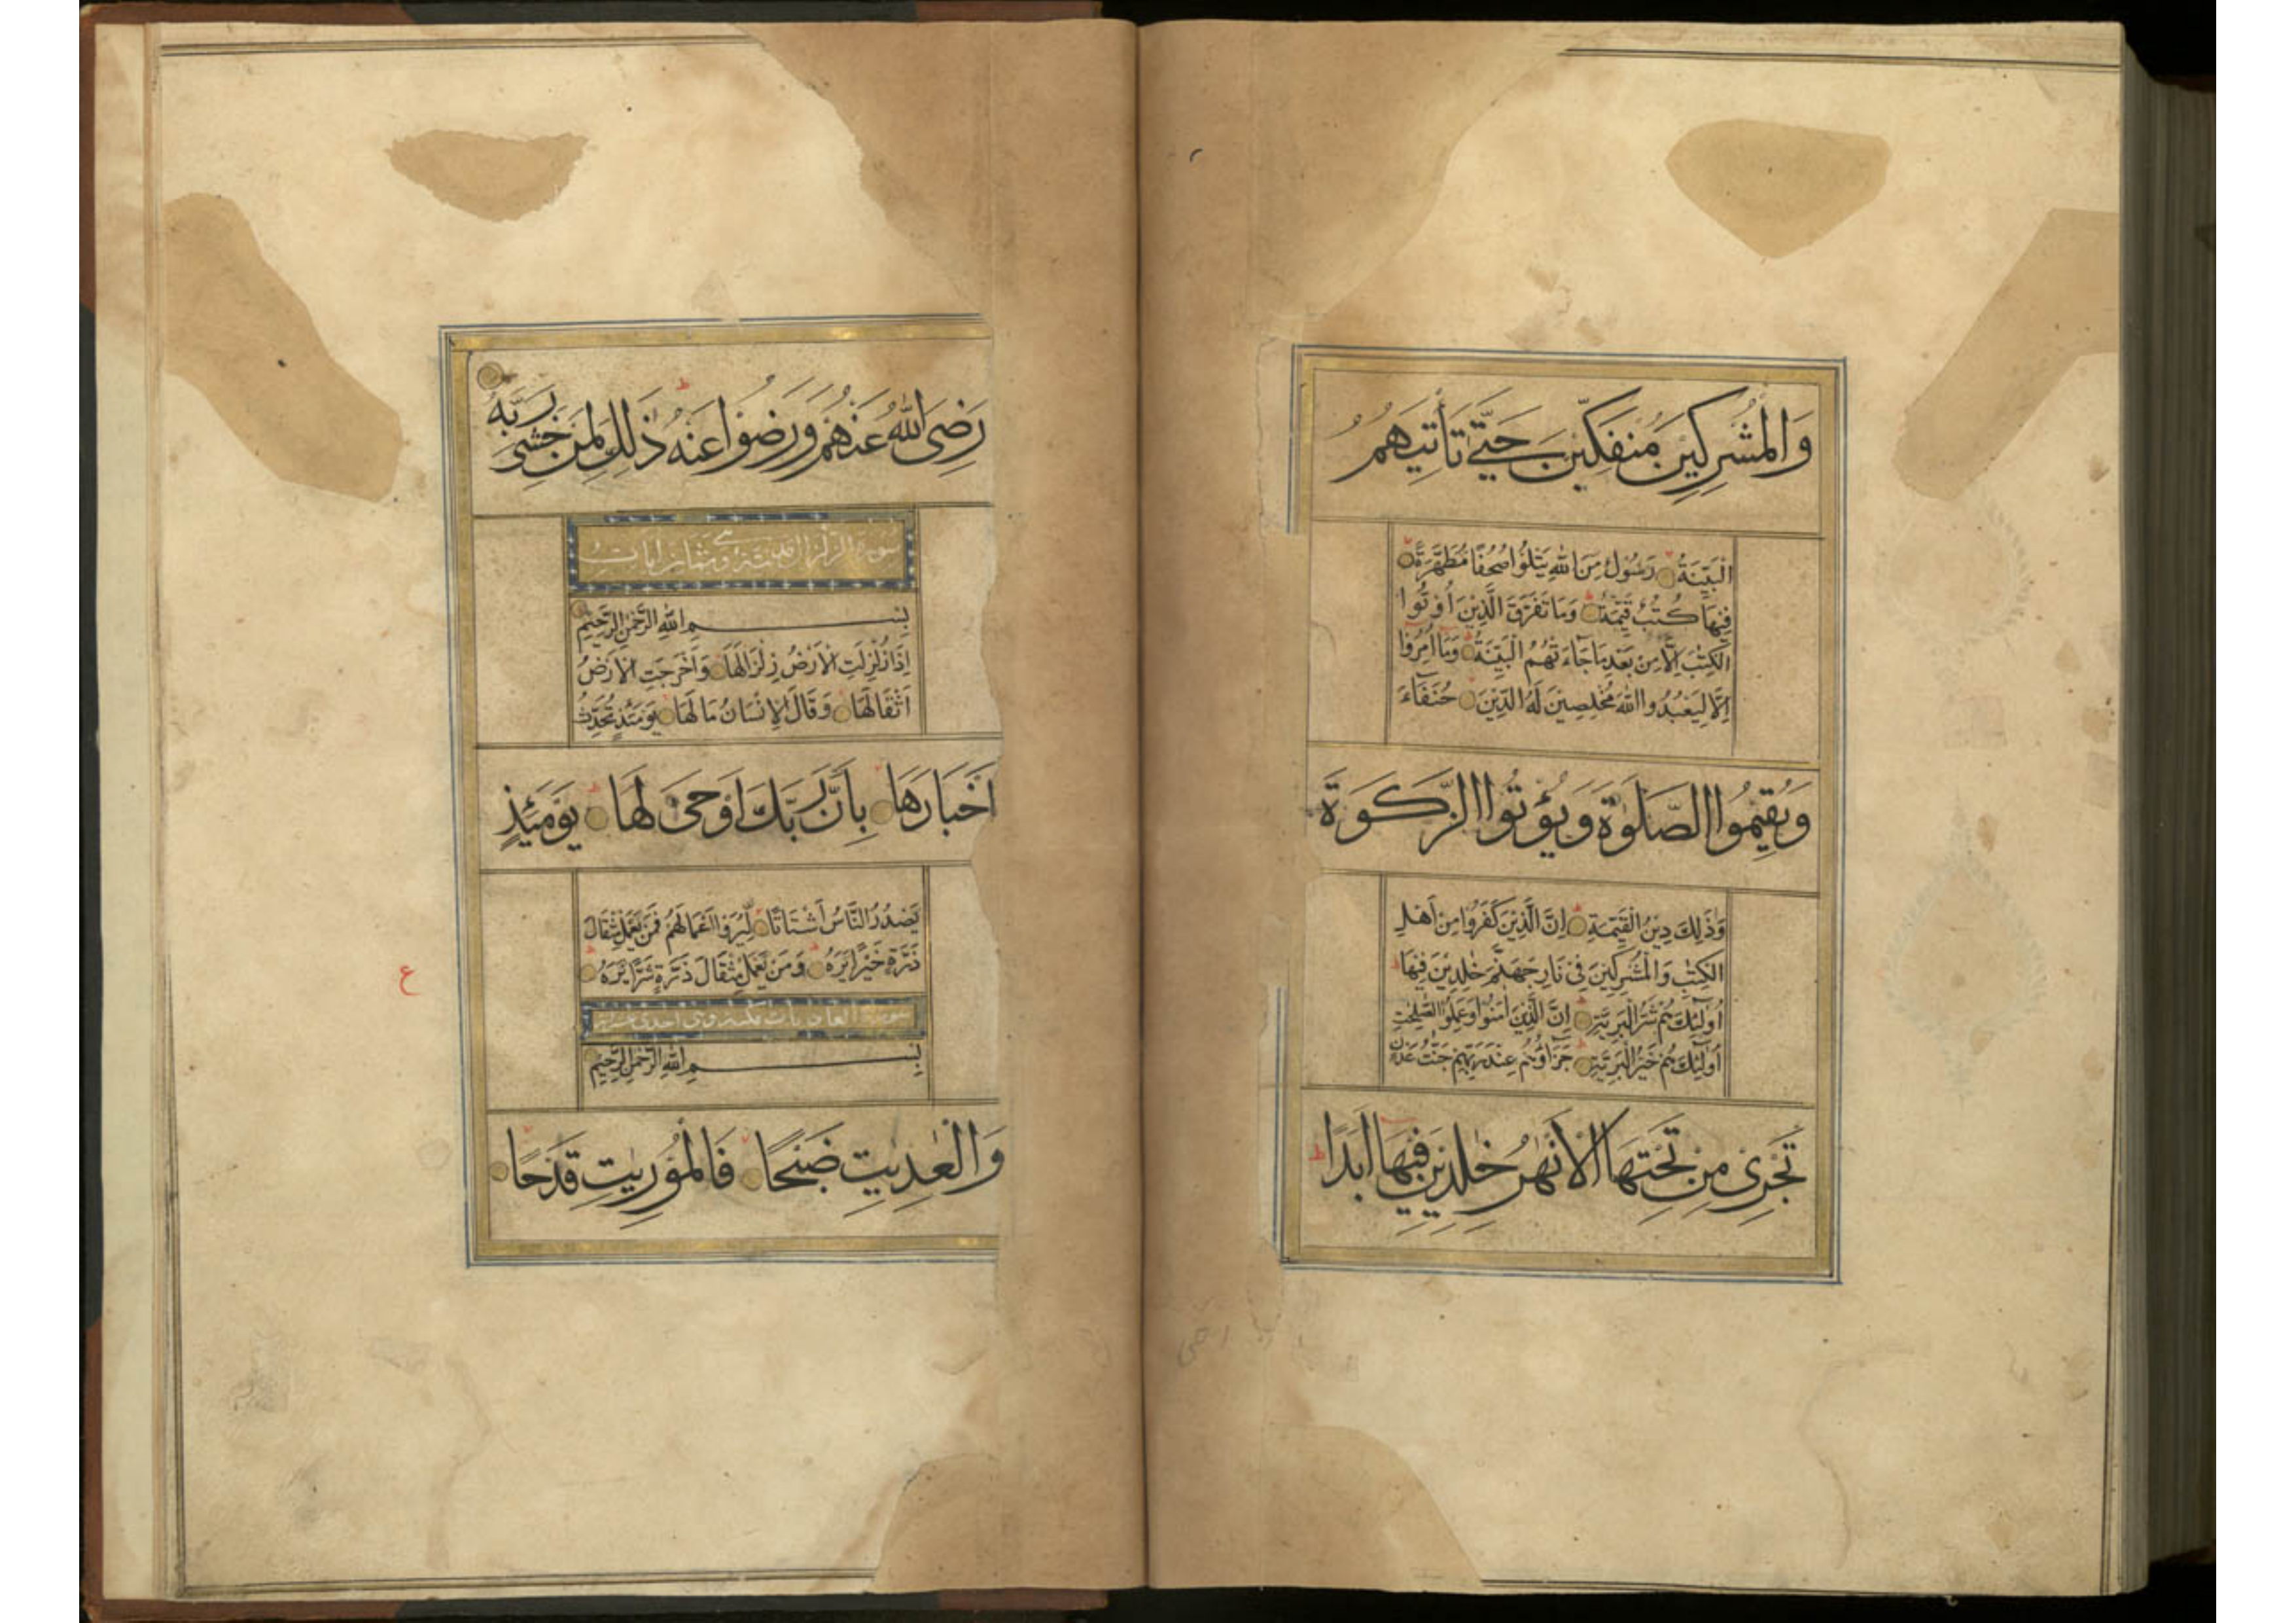 وَالْمُشْرِكِينَ مُنفَكِّينَ حَتَّى تَأْتِيَهُمُ
الْبَيِّنَةُ رَسُولٌ مِنَ اللهِ يَتْلُوا صُحُفًا مُطَهَّرَةً
فِيهَا كُتُبٌ قَيِّمَةٌ وَمَا تَفَرَّقَ الَّذِينَ أُوتُوا
الْكِتٰبَ إِلَّا مِنْ بَعْدِ مَا جَاءَتْهُمُ الْبَيِّنَةُ وَمَا أُمِرُوا
إِلَّا لِيَعْبُدُوا اللهَ مُخْلِصِينَ لَهُ الدِّينَ حُنَفَاءَ
وَيُقِيمُوا الصَّلٰوةَ وَيُؤْتُوا الزَّكَوةَ
وَذٰلِكَ دِينُ الْقَيِّمَةِ إِنَّ الَّذِينَ كَفَرُوا مِنْ أَهْلِ
الْكِتٰبِ وَالْمُشْرِكِينَ فِي نَارِ جَهَنَّمَ خٰلِدِينَ فِيهَا
أُولٰئِكَ هُمْ شَرُّ الْبَرِيَّةِ إِنَّ الَّذِينَ اٰمَنُوا وَعَمِلُوا الصّٰلِحٰتِ
أُولٰئِكَ هُمْ خَيْرُ الْبَرِيَّةِ جَزَاؤُهُمْ عِنْدَ رَبِّهِمْ جَنّٰتُ عَدْنٍ
تَجْرِي مِنْ تَحْتِهَا الْاَنْهٰرُ خٰلِدِينَ فِيهَا اَبَدًا
رَضِيَ اللهُ عَنْهُمْ وَرَضُوا عَنْهُ ذٰلِكَ لِمَنْ خَشِيَ رَبَّهُ
سورة الزلزال مدنية وهي ثمان ايات
بِسْمِ اللهِ الرَّحْمٰنِ الرَّحِيمِ
اِذَا زُلْزِلَتِ الْاَرْضُ زِلْزَالَهَا وَاَخْرَجَتِ الْاَرْضُ
اَثْقَالَهَا وَقَالَ الْاِنْسَانُ مَا لَهَا يَوْمَئِذٍ تُحَدِّثُ
اَخْبَارَهَا بِاَنَّ رَبَّكَ اَوْحَى لَهَا يَوْمَئِذٍ
يَصْدُرُ النَّاسُ اَشْتَاتًا لِيُرَوْا اَعْمَالَهُمْ فَمَنْ يَعْمَلْ مِثْقَالَ
ذَرَّةٍ خَيْرًا يَرَهُ وَمَنْ يَعْمَلْ مِثْقَالَ ذَرَّةٍ شَرًّا يَرَهُ
ع
سورة العاديات مكية وهي احدى عشرة
بِسْمِ اللهِ الرَّحْمٰنِ الرَّحِيمِ
وَالْعٰدِيٰتِ ضَبْحًا فَالْمُورِيٰتِ قَدْحًا